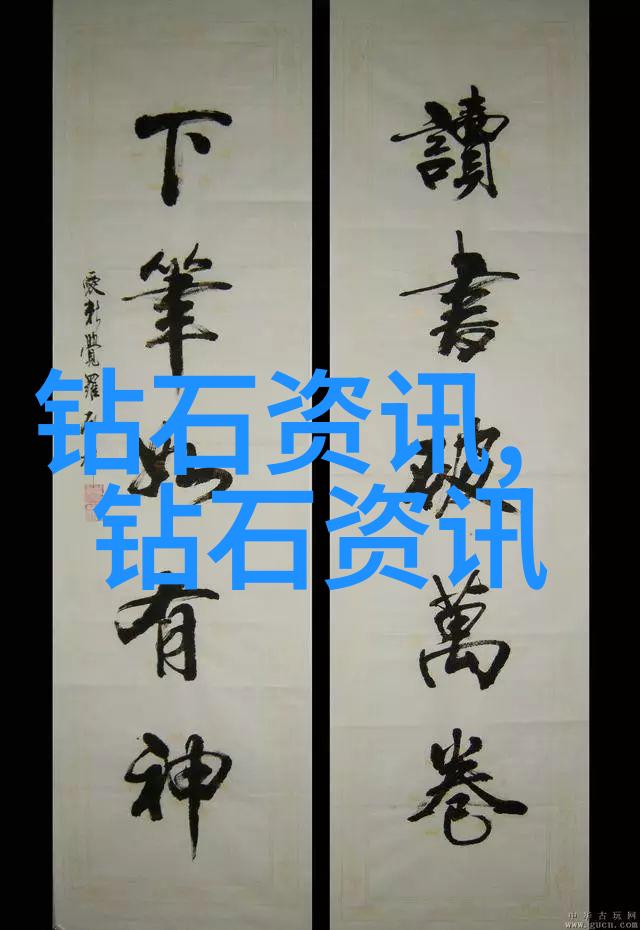 讀書破萬卷
下筆如有神
愛新覺羅
钻石资讯,
钻石资讯
中华古玩网
www.gucn.com